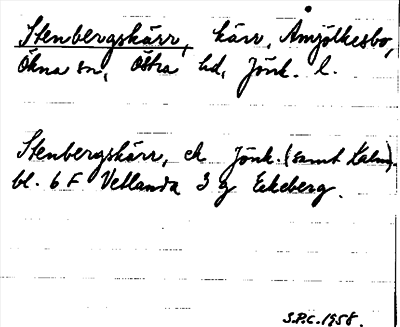 Stenbergskärr, kärr, Amjölkesbo,
Ökna sn, Östra hd, Jönk. l.
Stenbergskärr, ek Jönk. (samt Kalm).
bl. 6 F Vetlanda 3 g Ekeberg.
S.P.C. 1958.